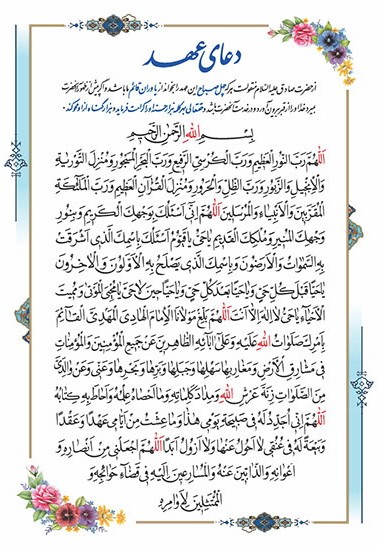 دعای عهد
از حضرت صادق علیه السلام منقولست هر که چهل صباح این عهد را بخواند از یاوران قائم ما باشد و اگر پیش از ظهور آنحضرت
بمیرد خدا او را از قبر بیرون آورد و در خدمت آنحضرت باشد و حقتعالی بهر کلمه هزار حسنه او را کرامت فرماید و هزار گناه از او محو کند
بِسْمِ اللهِ الرَّحْمنِ الرَّحیمِ
اَللّهُمَّ رَبَّ النُّورِ الْعَظیمِ وَ رَبَّ الْکُرْسِیِّ الرَّفیعِ وَ رَبَّ الْبَحْرِ الْمَسْجُورِ وَ مُنْزِلَ التَّوْریةِ
وَ الْاِنْجیلِ وَ الزَّبُورِ وَ رَبَّ الظِّلِّ وَ الْحَرُورِ وَ مُنْزِلَ الْقُرْآنِ الْعَظیمِ وَ رَبَّ الْمَلئِکَةِ
الْمُقَرَّبینَ وَ الْاَنْبِیاءِ وَ الْمُرْسَلینَ اَللّهُمَّ اِنّی اَسْئَلُکَ بِوَجْهِکَ الْکَریمِ وَ بِنُورِ
وَجْهِکَ الْمُنیرِ وَ مُلْکِکَ الْقَدیمِ یا حَیُّ یا قَیُّومُ اَسْئَلُکَ بِاسْمِکَ الَّذی اَشْرَقَتْ
بِهِ السَّمواتُ وَ الْاَرَضُونَ وَ بِاسْمِکَ الَّذی یَصْلَحُ بِهِ الْاَوَّلُونَ وَ الْاخِرُونَ
یا حَیّاً قَبْلَ کُلِّ حَیٍّ وَ یا حَیّاً بَعْدَ کُلِّ حَیٍّ وَ یا حَیّاً حینَ لا حَیَّ یا مُحْیِیَ الْمَوْتی وَ مُمیتَ
الْاَحْیاءِ یا حَیُّ لا اِلهَ اِلاّ اَنْتَ اَللّهُمَّ بَلِّغْ مَوْلانَا الْاِمامَ الْهادِیَ الْمَهْدِیَّ الْقائِمَ
بِاَمْرِکَ صَلَواتُ اللهِ عَلَیْهِ وَ عَلی آبائِهِ الطّاهِرینَ عَنْ جَمیعِ الْمُؤْمِنینَ وَ الْمُؤْمِناتِ
فی مَشارِقِ الْاَرْضِ وَ مَغارِبِها سَهْلِها وَ جَبَلِها وَ بَرِّها وَ بَحْرِها وَ عَنّی وَ عَنْ والِدَیَّ
مِنَ الصَّلَواتِ زِنَةَ عَرْشِ اللهِ وَ مِدادَ کَلِماتِهِ وَ ما اَحْصاهُ عِلْمُهُ وَ اَحاطَ بِهِ کِتابُهُ
اَللّهُمَّ اِنّی اُجَدِّدُ لَهُ فی صَبیحَةِ یَوْمی هذا وَ ما عِشْتُ مِنْ اَیّامی عَهْداً وَ عَقْداً
وَ بَیْعَةً لَهُ فی عُنُقی لا اَحُولُ عَنْها وَ لا اَزُولُ اَبَداً اَللّهُمَّ اجْعَلْنی مِنْ اَنْصارِهِ وَ
اَعْوانِهِ وَ الذّابّینَ عَنْهُ وَ الْمُسارِعینَ اِلَیْهِ فی قَضاءِ حَوائِجِهِ وَ
الْمُمْتَثِلینَ لِاَوامِرِهِ